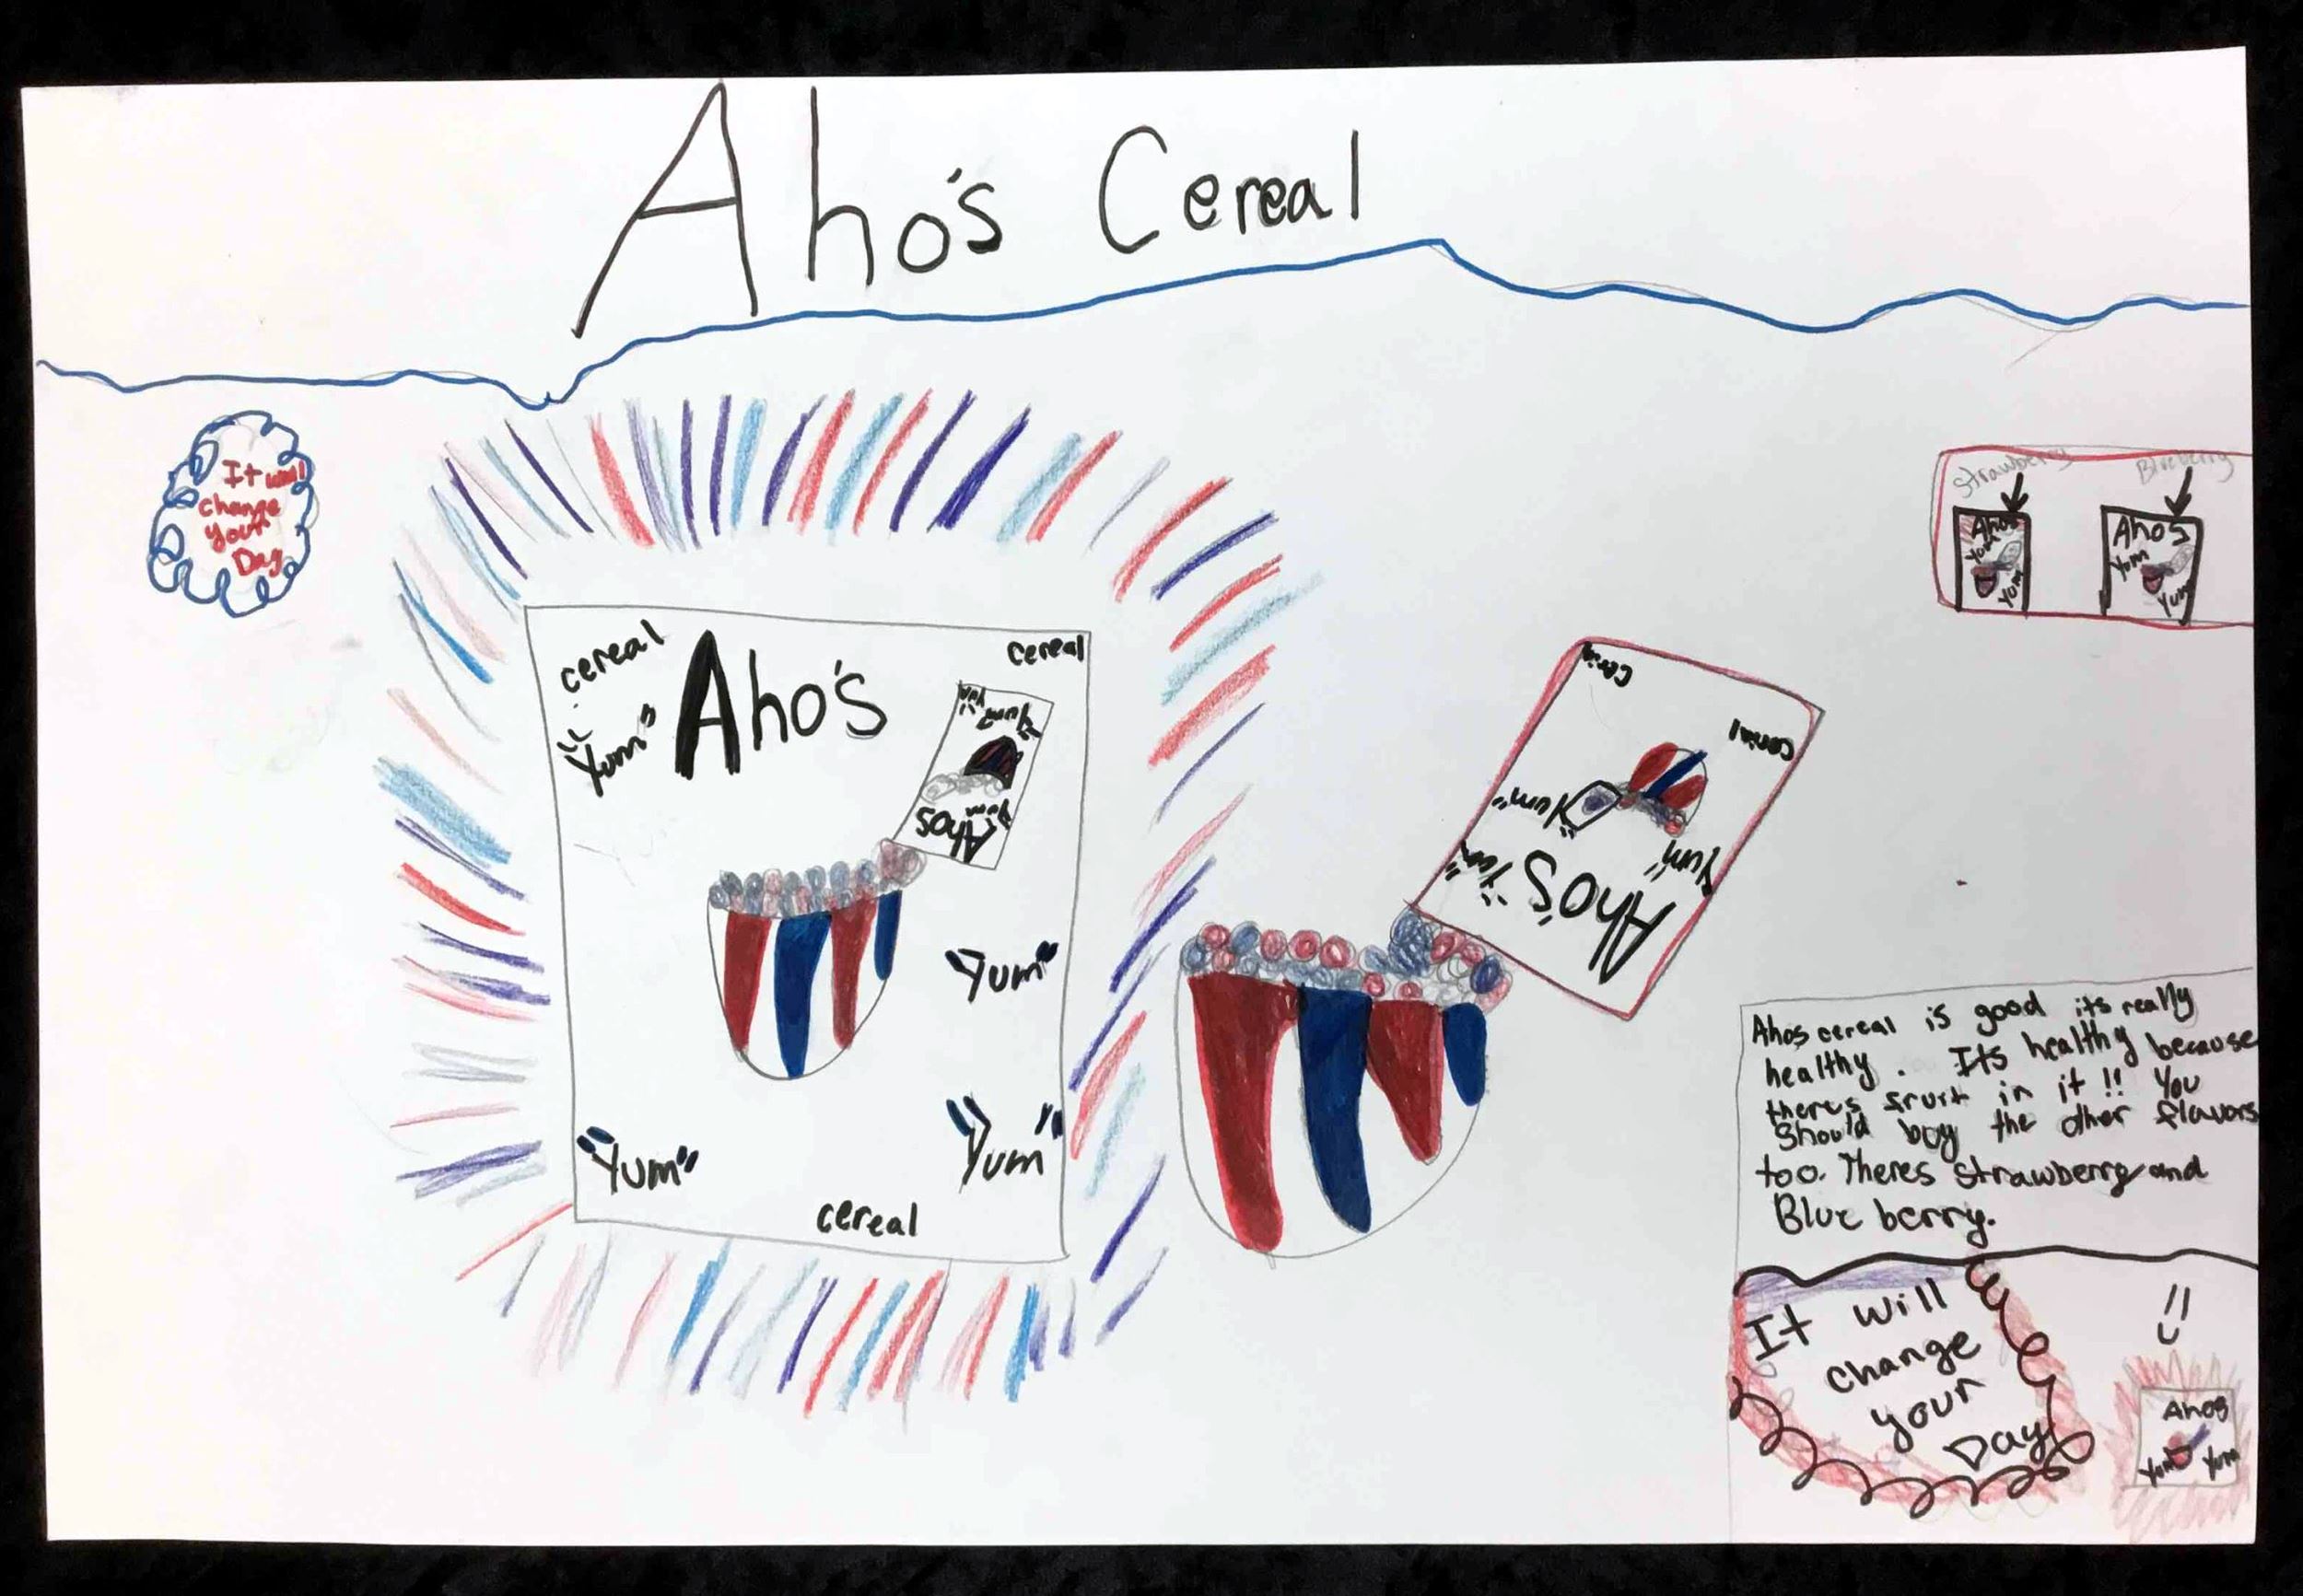 Aho's Cereal
It will
change
your
Day
Strawberry
Blueberry
Ahos
Yum
Yum
Ahos
Yum
Yum
cereal
Aho's
cereal
"Yum"
Yum
Ahos
"Yum"
"Yum"
"Yum"
cereal
"Yum"
"Yum"
Aho's
Ahos cereal is good its really
healthy. Its healthy because
theres fruit in it!! You
Should buy the other flavors
too. Theres Strawberry and
Blue berry.
It will
change
your
Day
!!
Ahos
Yum Yum